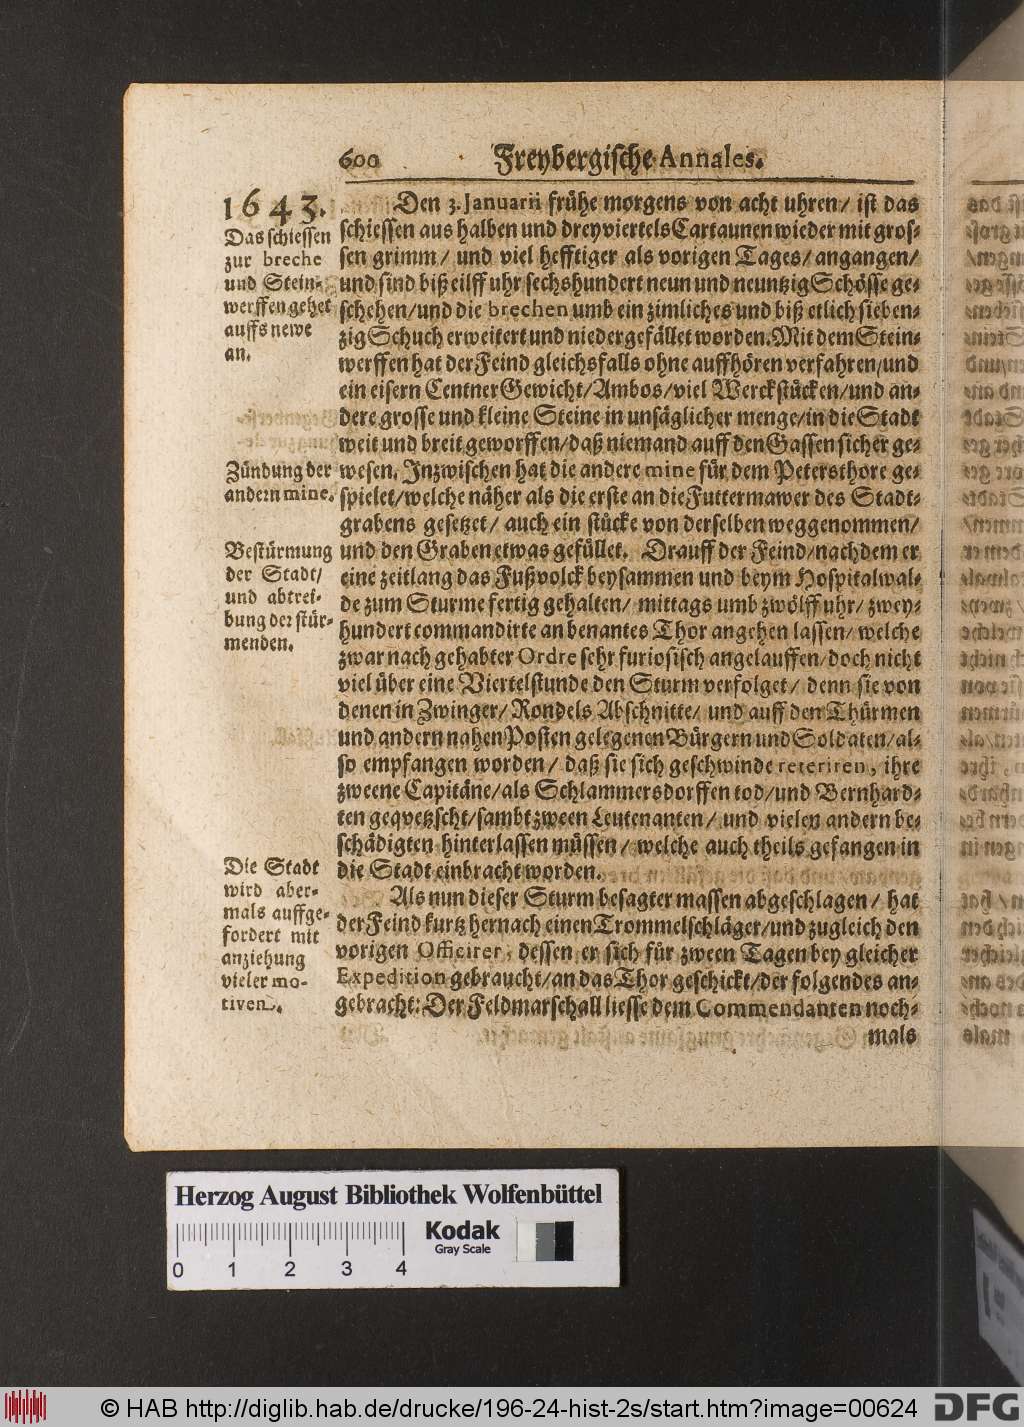 600 Freybergische Annales.
1643.
Das schiessen
zur breche
und Stein-
werffen gehet
auffs newe
an.
Den 3. Januarii frühe morgens von acht uhren/ ist das
schiessen aus halben und dreyviertels Cartaunen wieder mit gros-
sen grimm/ und viel hefftiger als vorigen Tages/ angangen/
und sind biß eilff uhr sechshundert neun und neuntzig Schösse ge-
schehen/ und die brechen umb ein zimliches und biß etlich sieben-
zig Schuch erweitert und niedergefället worden. Mit dem Stein-
werffen hat der Feind gleichsfalls ohne auffhören verfahren/ und
ein eisern Centner Gewicht/ Ambos/ viel Werckstücken/ und an-
dere grosse und kleine Steine in unsäglicher menge/ in die Stadt
weit und breit geworffen/ daß niemand auff den Gassen sicher ge-
Zündung der
andern mine.
wesen. Inzwischen hat die andere mine für dem Petersthore ge-
spielet/ welche näher als die erste an die Futtermawer des Stadt-
grabens gesetzet/ auch ein stücke von derselben weggenommen/
Bestürmung
der Stadt/
und abtrei-
bung der stür-
menden.
und den Graben etwas gefüllet. Drauff der Feind/ nachdem er
eine zeitlang das Fußvolck beysammen und beym Hospitalwal-
de zum Sturme fertig gehalten/ mittags umb zwölff uhr/ zwey-
hundert commandirte an benantes Thor angehen lassen/ welche
zwar nach gehabter Ordre sehr furiosisch angelauffen/ doch nicht
viel über eine Viertelstunde den Sturm verfolget/ denn sie von
denen in Zwinger/ Rondels Abschnitte/ und auff den Thürmen
und andern nahen Posten gelegenen Bürgern und Soldaten/ al-
so empfangen worden/ daß sie sich geschwinde reteriren, ihre
zweene Capitäne/ als Schlammersdorffen tod/ und Bernhard-
ten geqvetzscht/ sambt zween Leutenanten/ und vielen andern be-
schädigten hinterlassen müssen/ welche auch theils gefangen in
die Stadt einbracht worden.
Die Stadt
wird aber-
mals auffge-
fordert mit
anziehung
vieler mo-
tiven.
Als nun dieser Sturm besagter massen abgeschlagen/ hat
der Feind kurtz hernach einen Trommelschläger/ und zugleich den
vorigen Officirer, dessen er sich für zween Tagen bey gleicher
Expedition gebraucht/ an das Thor geschickt/ der folgendes an-
gebracht: Der Feldmarschall liesse dem Commendanten noch-
mals
Herzog August Bibliothek Wolfenbüttel
Kodak
Gray Scale
0 1 2 3 4
© HAB http://diglib.hab.de/drucke/196-24-hist-2s/start.htm?image=00624
DFG